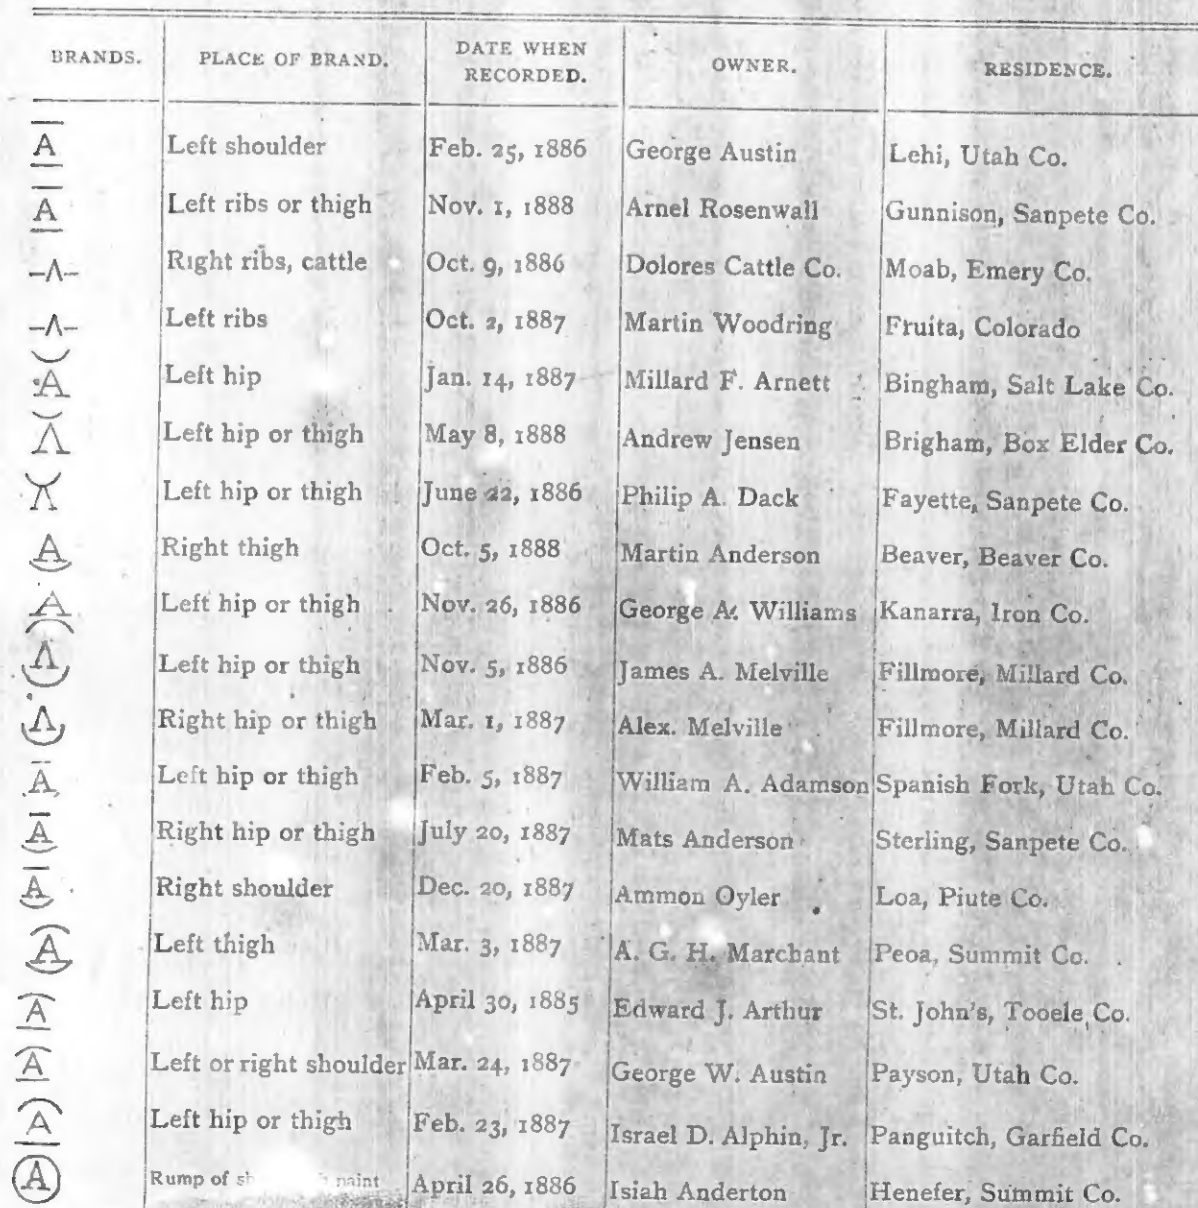 BRANDS. PLACE OF BRAND. DATE WHEN RECORDED. OWNER. RESIDENCE.
A Left shoulder Feb. 25, 1886 George Austin Lehi, Utah Co.
A Left ribs or thigh Nov. 1, 1888 Arnel Rosenwall Gunnison, Sanpete Co.
-Λ- Right ribs, cattle Oct. 9, 1886 Dolores Cattle Co. Moab, Emery Co.
-Λ- Left ribs Oct. 2, 1887 Martin Woodring Fruita, Colorado
A Left hip Jan. 14, 1887 Millard F. Arnett Bingham, Salt Lake Co.
Λ Left hip or thigh May 8, 1888 Andrew Jensen Brigham, Box Elder Co.
Left hip or thigh June 22, 1886 Philip A. Dack Fayette, Sanpete Co.
A Right thigh Oct. 5, 1888 Martin Anderson Beaver, Beaver Co.
A Left hip or thigh Nov. 26, 1886 George A. Williams Kanarra, Iron Co.
Λ Left hip or thigh Nov. 5, 1886 James A. Melville Fillmore, Millard Co.
Λ Right hip or thigh Mar. 1, 1887 Alex. Melville Fillmore, Millard Co.
A Left hip or thigh Feb. 5, 1887 William A. Adamson Spanish Fork, Utah Co.
A Right hip or thigh July 20, 1887 Mats Anderson Sterling, Sanpete Co.
A Right shoulder Dec. 20, 1887 Ammon Oyler Loa, Piute Co.
A Left thigh Mar. 3, 1887 A. G. H. Marchant Peoa, Summit Co.
A Left hip April 30, 1885 Edward J. Arthur St. John's, Tooele Co.
A Left or right shoulder Mar. 24, 1887 George W. Austin Payson, Utah Co.
A Left hip or thigh Feb. 23, 1887 Israel D. Alphin, Jr. Panguitch, Garfield Co.
A Rump of paint April 26, 1886 Isiah Anderton Henefer, Summit Co.